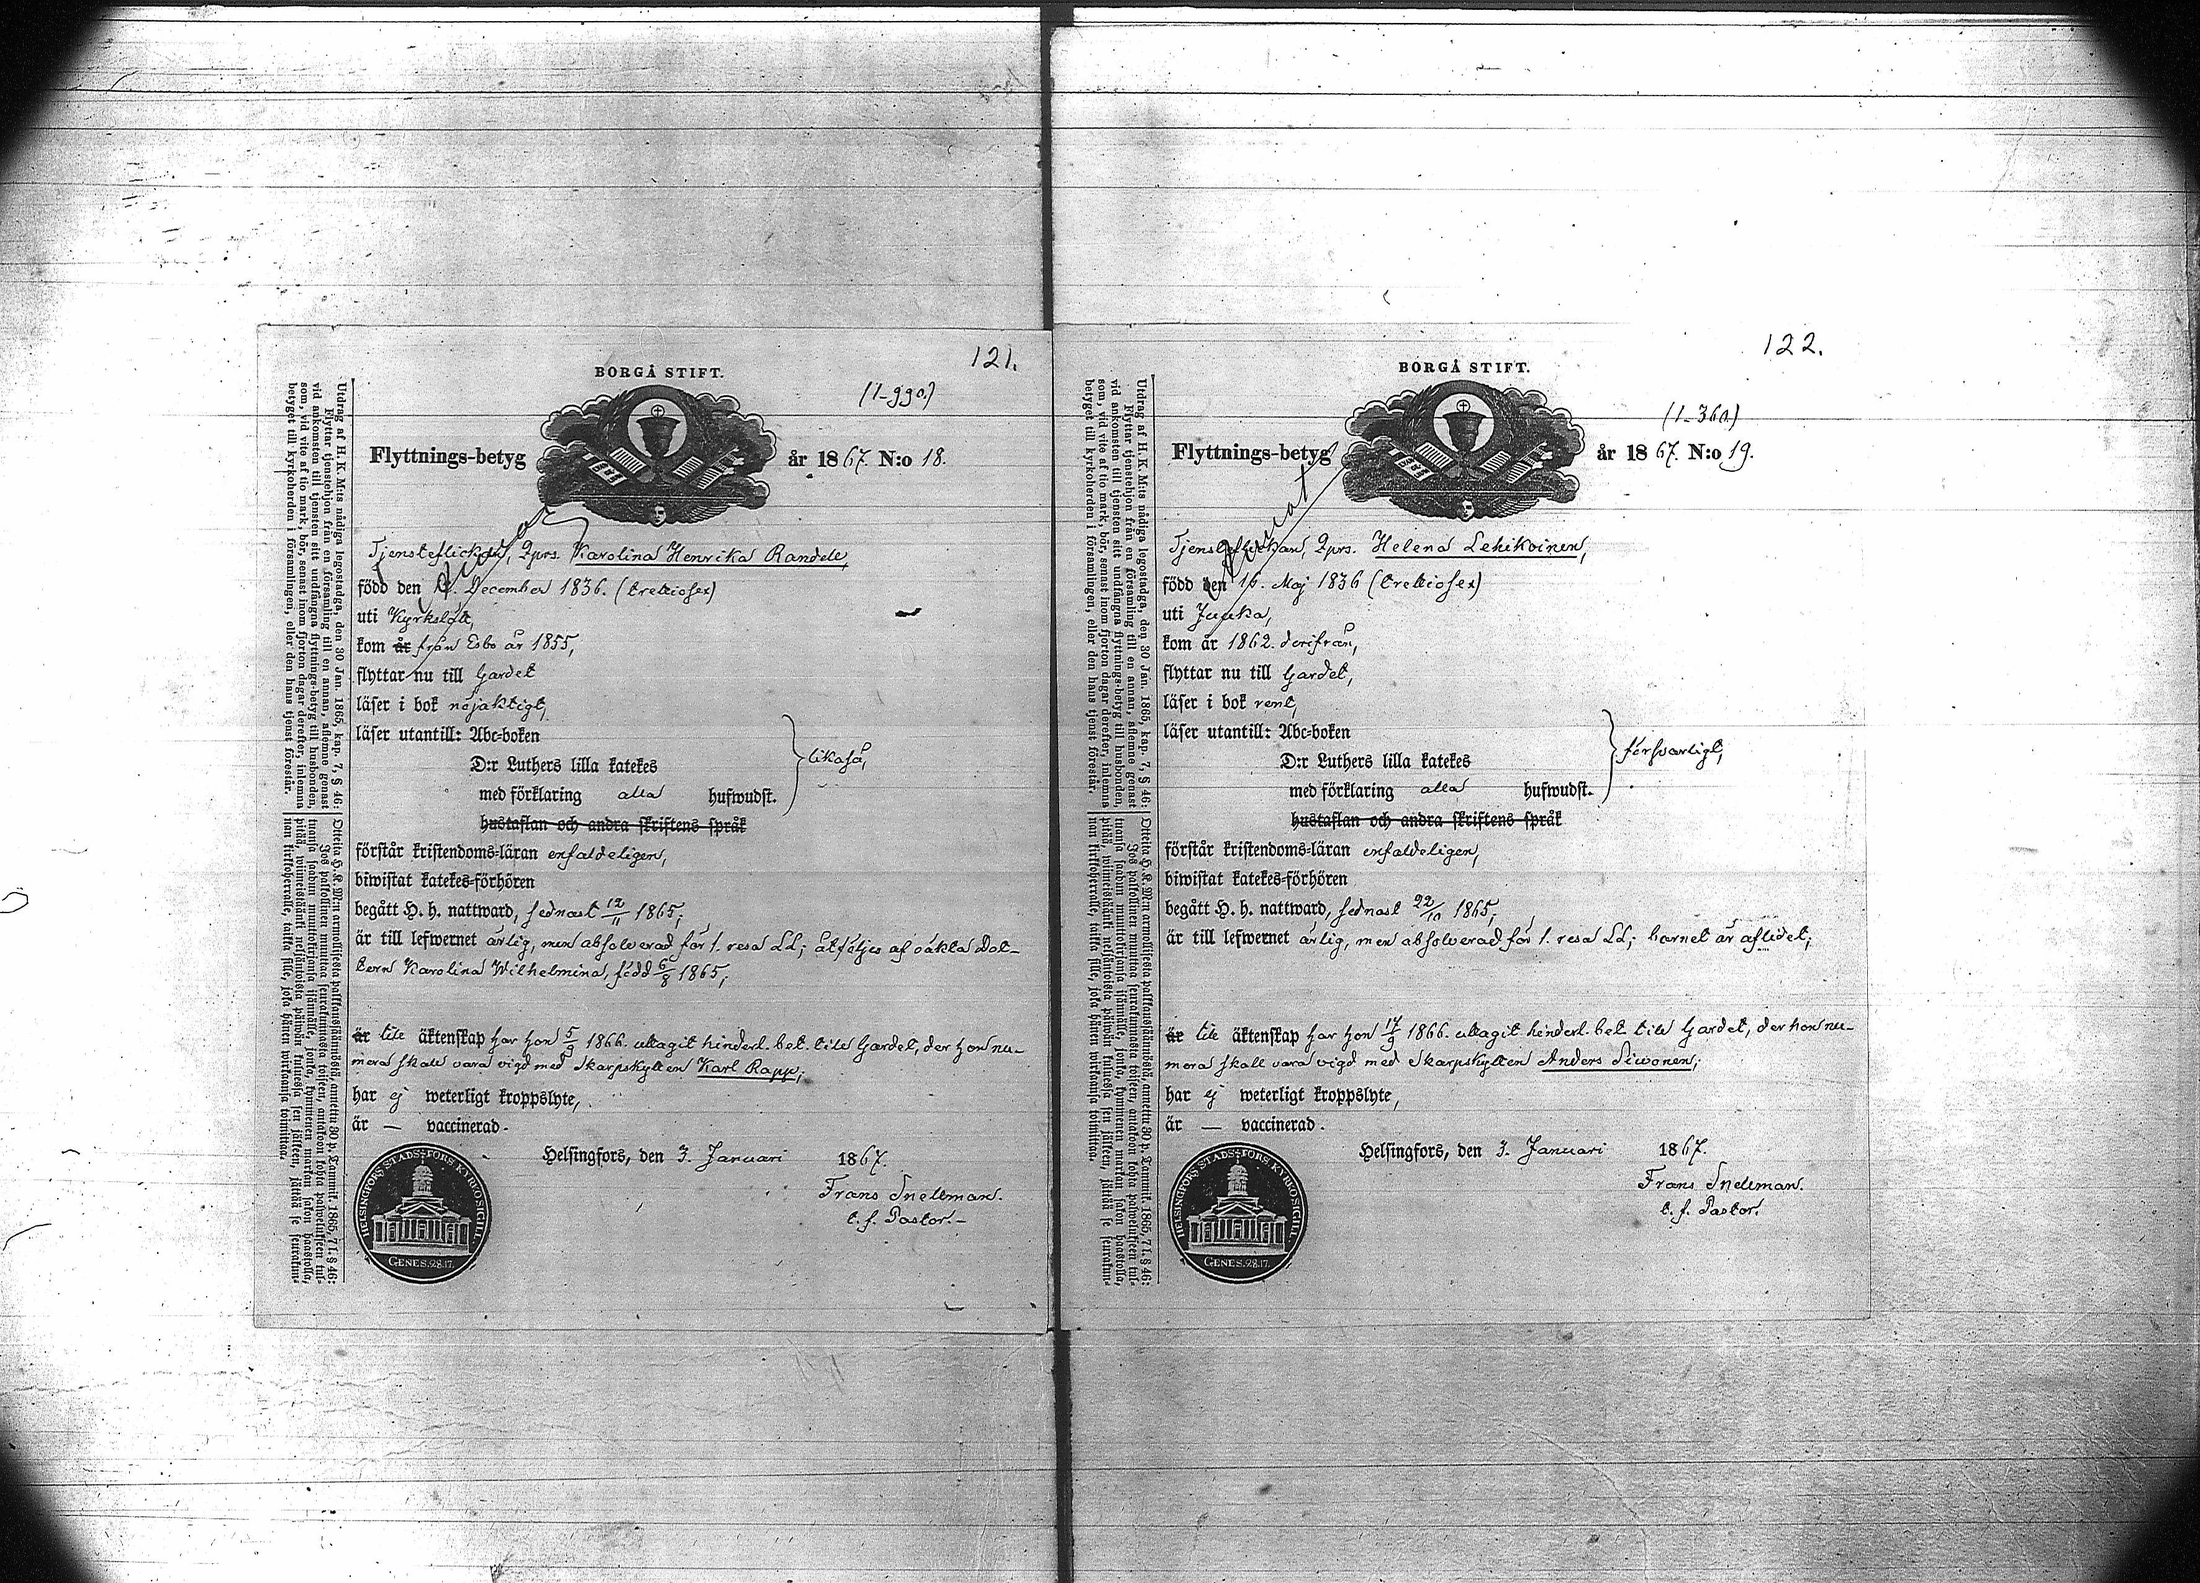 121.
BORGÅ STIFT.
(1-990.)
Flyttnings-betyg år 1867. N:o 18.
Tjensteflickan, 2prs. Karolina Henrika Randel,
född den December 1836. (trettiosex)
uti Kyrkslätt,
kom år från Esbo år 1855,
flyttar nu till Gardet
läser i bok nöjaktigt,
läser utantill: Abc-boken
D:r Luthers lilla katekes
med förklaring alla hufwudst.
likaså,
hustaflan och andra skriftens språk
förstår kristendoms-läran enfaldeligen,
biwistat katekes-förhören
begått H. h. nattward, sednast 12/11 1865;
är till lefwernet ärlig, men absolverad för 1. resa LL; åtföljes af oäkta Dot-
tern Karolina Wilhelmina, född 6/8 1865;
är till äktenskap har hon 5/9 1866. uttagit hinderl. bet. till Gardet, der hon nu-
mera skall vara vigd med Skarpskytten Karl Rapp;
har ej weterligt kroppslyte,
är — vaccinerad.
Helsingfors, den 3. Januari 1867.
Frans Snellman.
t. f. Pastor.
HELSINGFORS STADSFÖRS. KYRKOSIGILL.
GENES. 28.17.
Utdrag af H. K. M:ts nådiga legostadga, den 30 Jan. 1865, kap. 7, § 46:
Flyttar tjenstehjon från en församling till en annan, aflemne genast
vid ankomsten till tjensten sitt undfångna flyttnings-betyg till husbonden,
som, vid vite af tio mark, bör, senast inom fjorton dagar derefter, inlemna
betyget till kyrkoherden i församlingen, eller den hans tjenst förestår.
122.
BORGÅ STIFT.
(1-360.)
Flyttnings-betyg år 1867. N:o 19.
Tjensteflickan, 2prs. Helena Lehikoinen,
född den 16. Maj 1836 (trettiosex)
uti Juuka,
kom år 1862. derifrån,
flyttar nu till Gardet,
läser i bok rent,
läser utantill: Abc-boken
D:r Luthers lilla katekes
med förklaring alla hufwudst.
försvarligt,
hustaflan och andra skriftens språk
förstår kristendoms-läran enfaldeligen,
biwistat katekes-förhören
begått H. h. nattward, sednast 22/10 1865;
är till lefwernet ärlig, men absolverad för 1. resa LL; barnet är aflidet;
är till äktenskap har hon 17/9 1866. uttagit hinderl. bet. till Gardet, der hon nu-
mera skall vara vigd med Skarpskytten Anders Siwonen;
har ej weterligt kroppslyte,
är — vaccinerad.
Helsingfors, den 3. Januari 1867.
Frans Snellman.
t. f. Pastor.
HELSINGFORS STADSFÖRS. KYRKOSIGILL.
GENES. 28.17.
Utdrag af H. K. M:ts nådiga legostadga, den 30 Jan. 1865, kap. 7, § 46:
Flyttar tjenstehjon från en församling till en annan, aflemne genast
vid ankomsten till tjensten sitt undfångna flyttnings-betyg till husbonden,
som, vid vite af tio mark, bör, senast inom fjorton dagar derefter, inlemna
betyget till kyrkoherden i församlingen, eller den hans tjenst förestår.